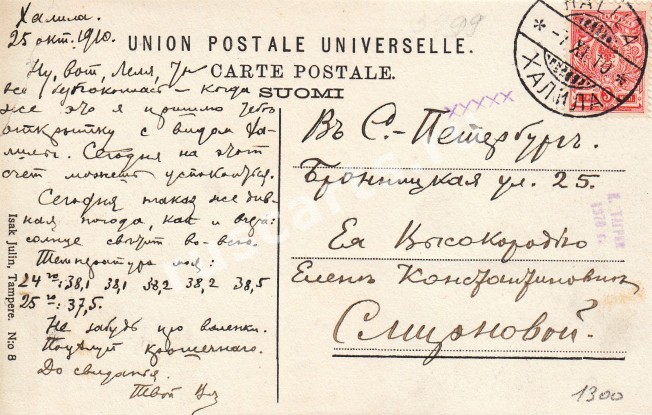 Халила.
25 окт. 1910.
UNION POSTALE UNIVERSELLE.
CARTE POSTALE.
SUOMI
ХАЛИЛА
XXXXX
Ну, вот, Леля, Ты
все беспокоилась – когда
же это я пришлю тебе
открытку с видом Ха-
лилы. Сегодня на этот
счет можешь успокоиться.
Сегодня такая же див-
ная погода, как и вчера:
солнце светит во-всю.
Температура моя:
24го: 38,1 38,1 38,2 38,2 38,5
25го: 37,5.
Не забудь про валенки.
Поцелуй крошечного.
До свидания.
Твой
Въ С.-Петербургъ.
Бронницкая ул. 25.
Ея Высокородію
Еленѣ Константиновнѣ
Смирновой.
1300
Isak Julin, Tampere. No 8